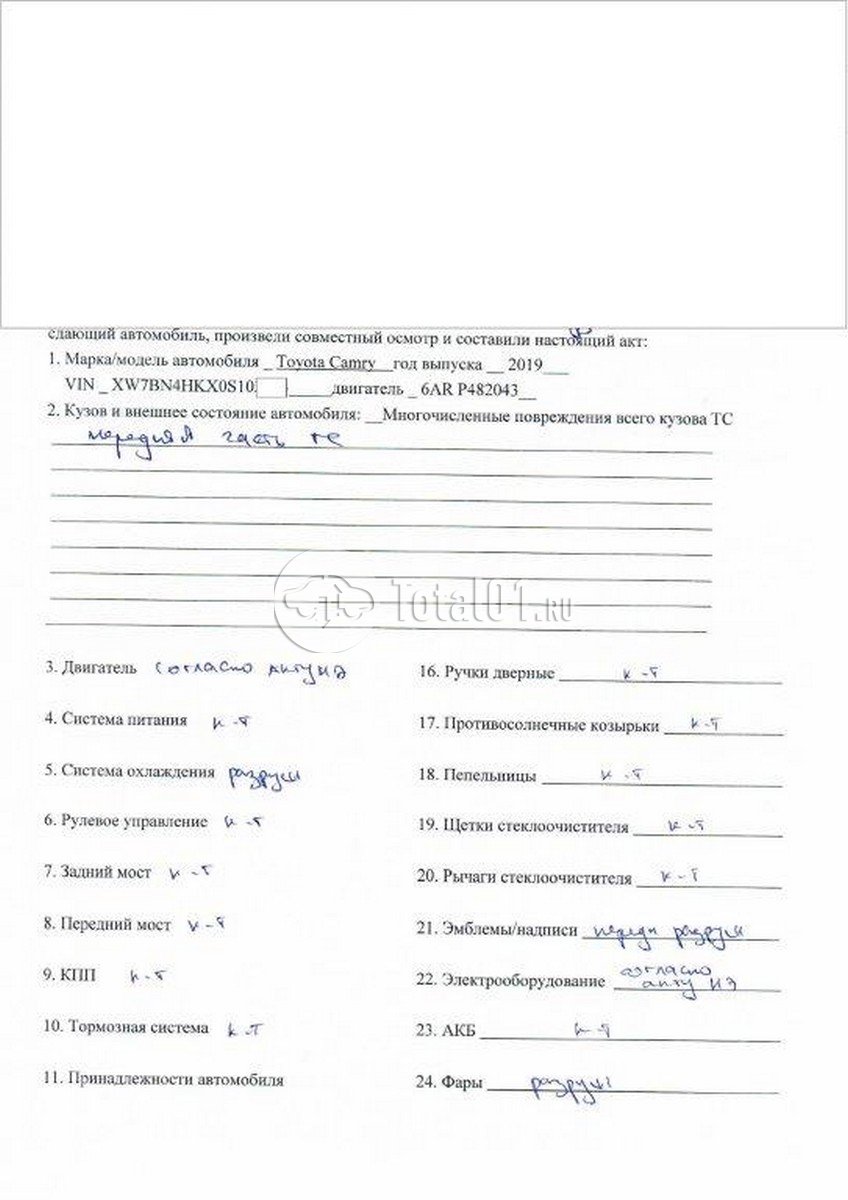 сдающий автомобиль, произвели совместный осмотр и составили настоящий акт:
1. Марка/модель автомобиля _ Toyota Camry__ год выпуска __ 2019___
VIN _ XW7BN4HKX0S10 _____двигатель _ 6AR P482043__
2. Кузов и внешнее состояние автомобиля: __Многочисленные повреждения всего кузова ТС
передняя часть тс
Total01.RU
3. Двигатель согласно акту НЭ
4. Система питания к-т
5. Система охлаждения разруш
6. Рулевое управление к-т
7. Задний мост к-т
8. Передний мост к-т
9. КПП к-т
10. Тормозная система к-т
11. Принадлежности автомобиля
16. Ручки дверные к-т
17. Противосолнечные козырьки к-т
18. Пепельницы к-т
19. Щетки стеклоочистителя к-т
20. Рычаги стеклоочистителя к-т
21. Эмблемы/надписи передн разруш
22. Электрооборудование согласно
акту НЭ
23. АКБ к-т
24. Фары разруш